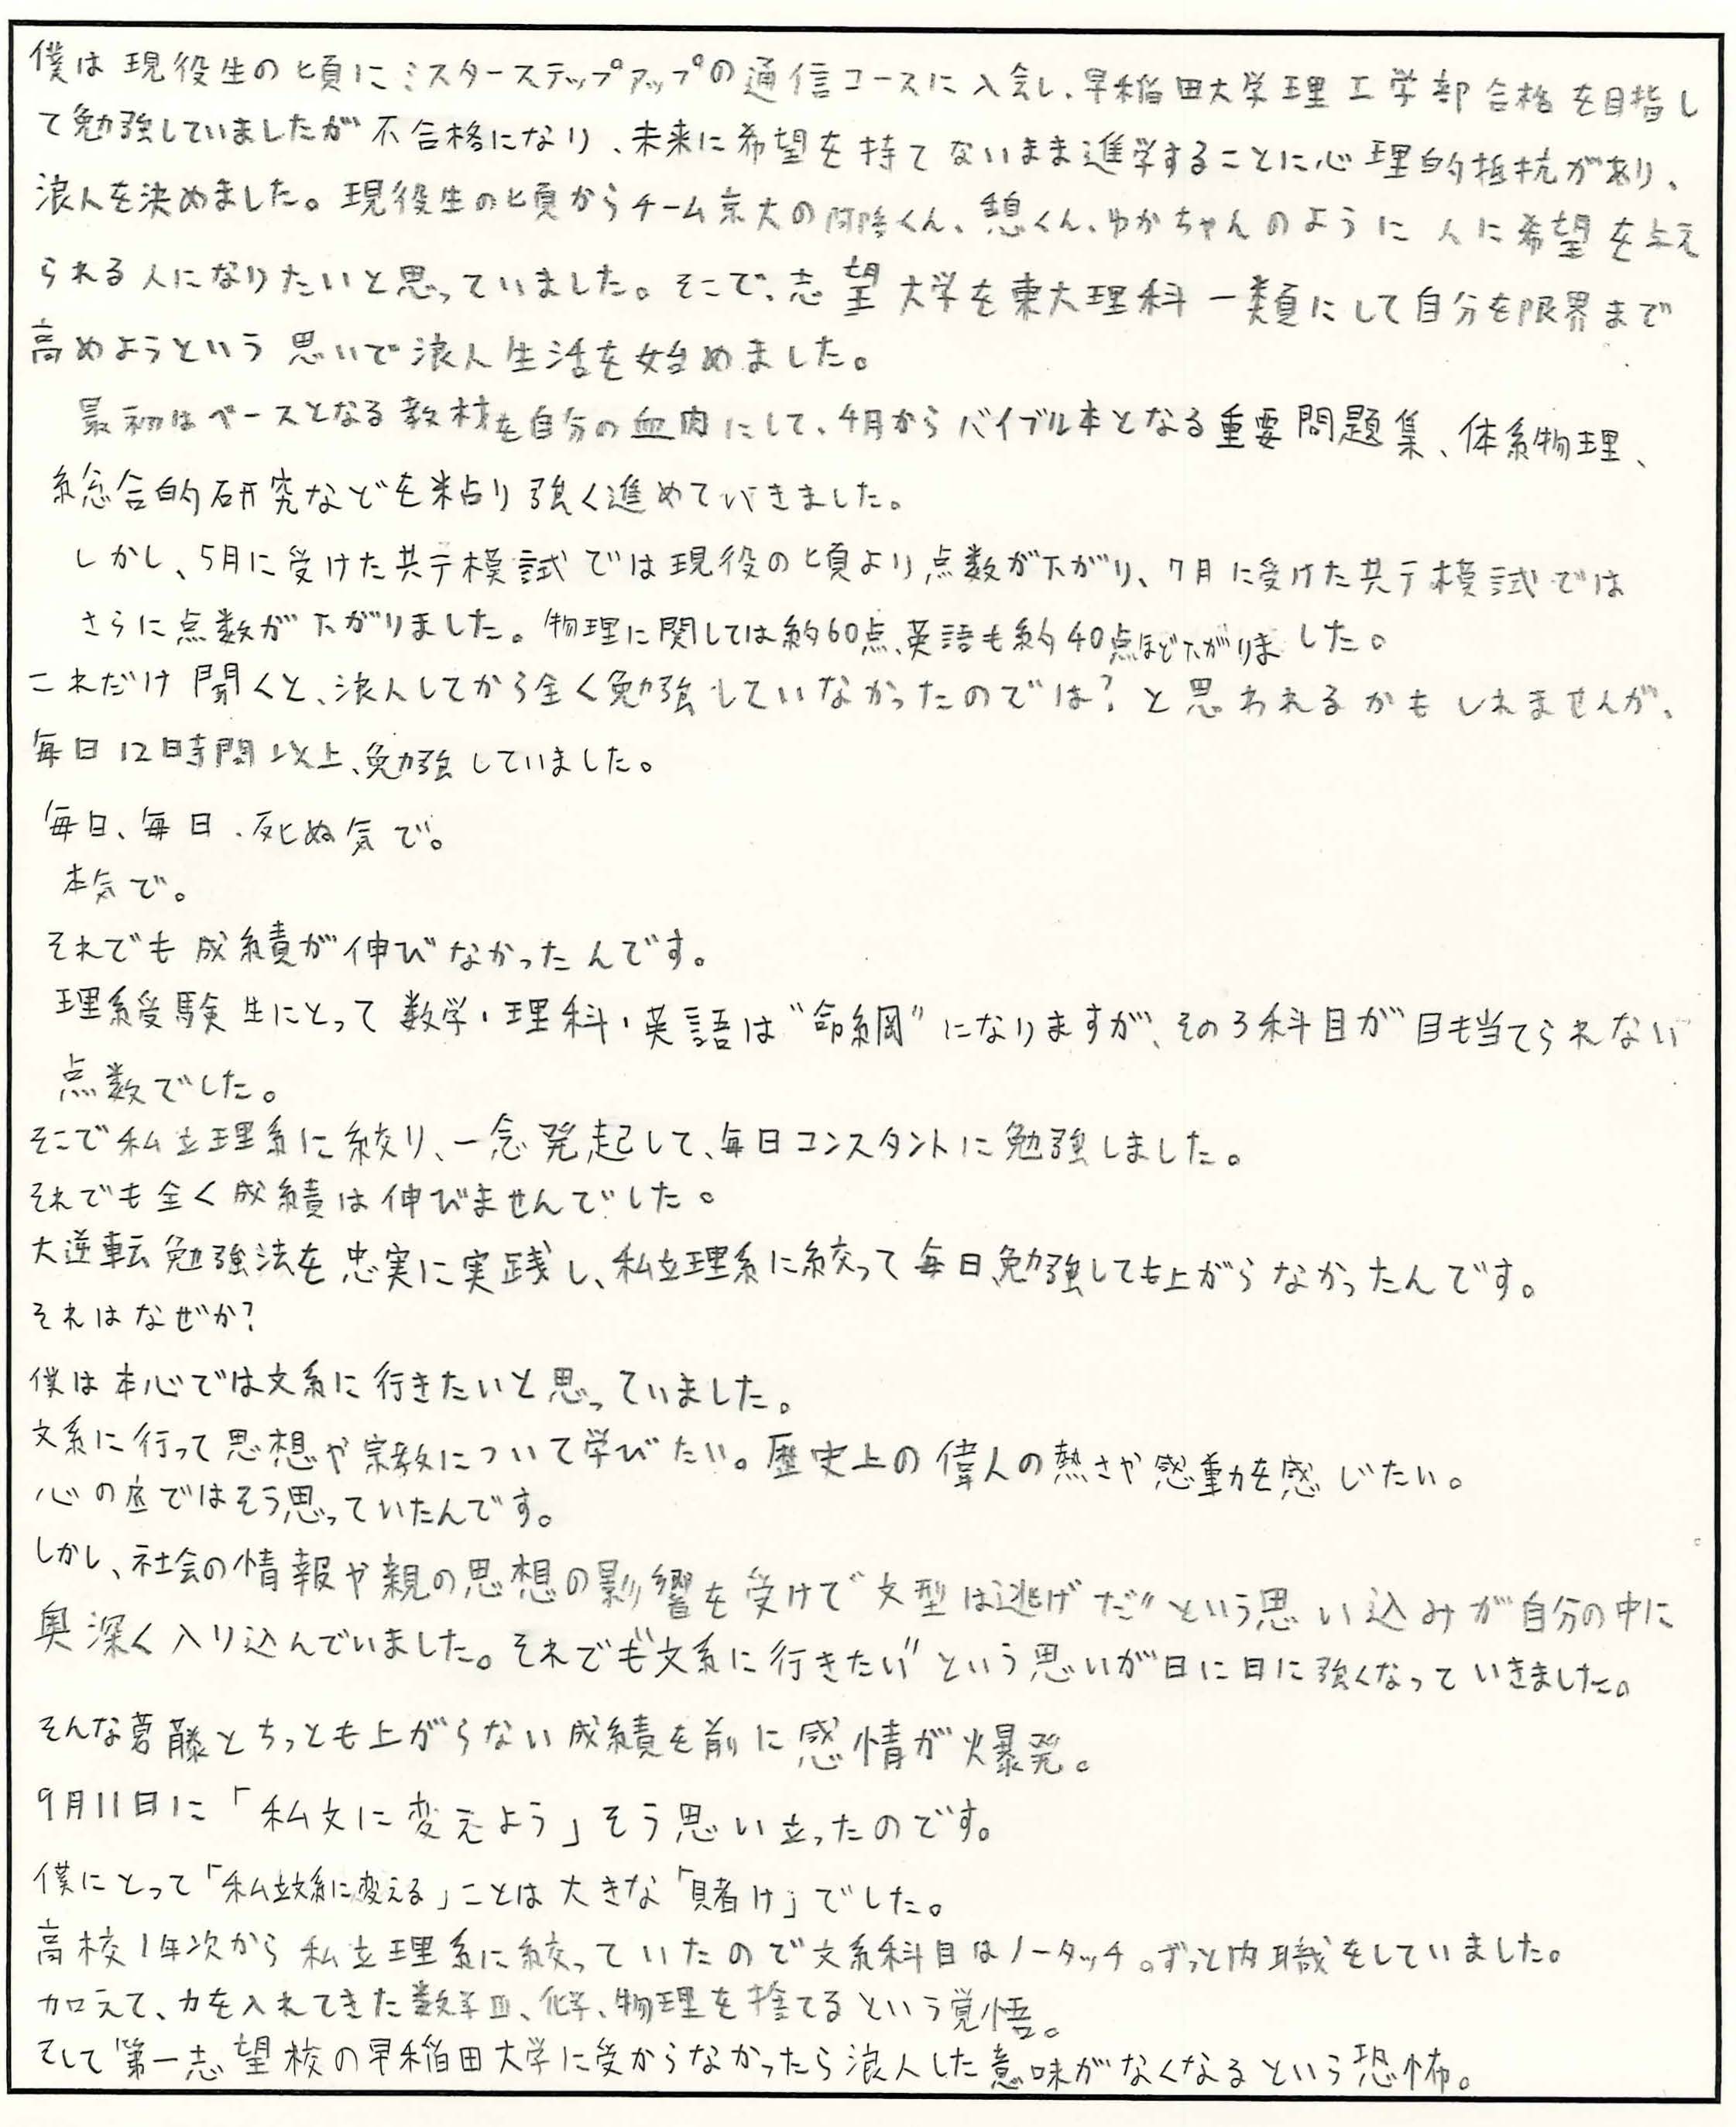 僕は現役生の頃にミスターステップアップの通信コースに入会し、早稲田大学理工学部合格を目指し
て勉強していましたが不合格になり、未来に希望を持てないまま進学することに心理的抵抗があり、
浪人を決めました。現役生の頃からチーム京大の阿陪くん、憩くん、ゆかちゃんのように人に希望を与え
られる人になりたいと思っていました。そこで、志望大学を東大理科一類にして自分を限界まで
高めようという思いで浪人生活を始めました。
最初はベースとなる教材を自分の血肉にして、4月からバイブル本となる重要問題集、体系物理、
総合的研究などを粘り強く進めていきました。
しかし、5月に受けた共テ模試では現役の頃より点数が下がり、7月に受けた共テ模試では
さらに点数が下がりました。物理に関しては約60点、英語も約40点ほど下がりました。
これだけ聞くと、浪人してから全く勉強していなかったのでは?と思われるかもしれませんが、
毎日12時間以上、勉強していました。
毎日、毎日、死ぬ気で。
本気で。
それでも成績が伸びなかったんです。
理系受験生にとって数学・理科・英語は"命綱"になりますが、その3科目が目も当てられない
点数でした。
そこで私立理系に絞り、一念発起して、毎日コンスタントに勉強しました。
それでも全く成績は伸びませんでした。
大逆転勉強法を忠実に実践し、私立理系に絞って毎日、勉強しても上がらなかったんです。
それはなぜか?
僕は本心では文系に行きたいと思っていました。
文系に行って思想や宗教について学びたい。歴史上の偉人の熱さや感動を感じたい。
心の底ではそう思っていたんです。
しかし、社会の情報や親の思想の影響を受けて"文型は逃げだ"という思い込みが自分の中に
奥深く入り込んでいました。それでも"文系に行きたい"という思いが日に日に強くなっていきました。
そんな葛藤とちっとも上がらない成績を前に感情が爆発。
9月11日に「私文に変えよう」そう思い立ったのです。
僕にとって「私立文系に変える」ことは大きな「賭け」でした。
高校1年次から私立理系に絞っていたので文系科目はノータッチ。ずっと内職をしていました。
加えて、力を入れてきた数学Ⅲ、化学、物理を捨てるという覚悟。
そして第一志望校の早稲田大学に受からなかったら浪人した意味がなくなるという恐怖。